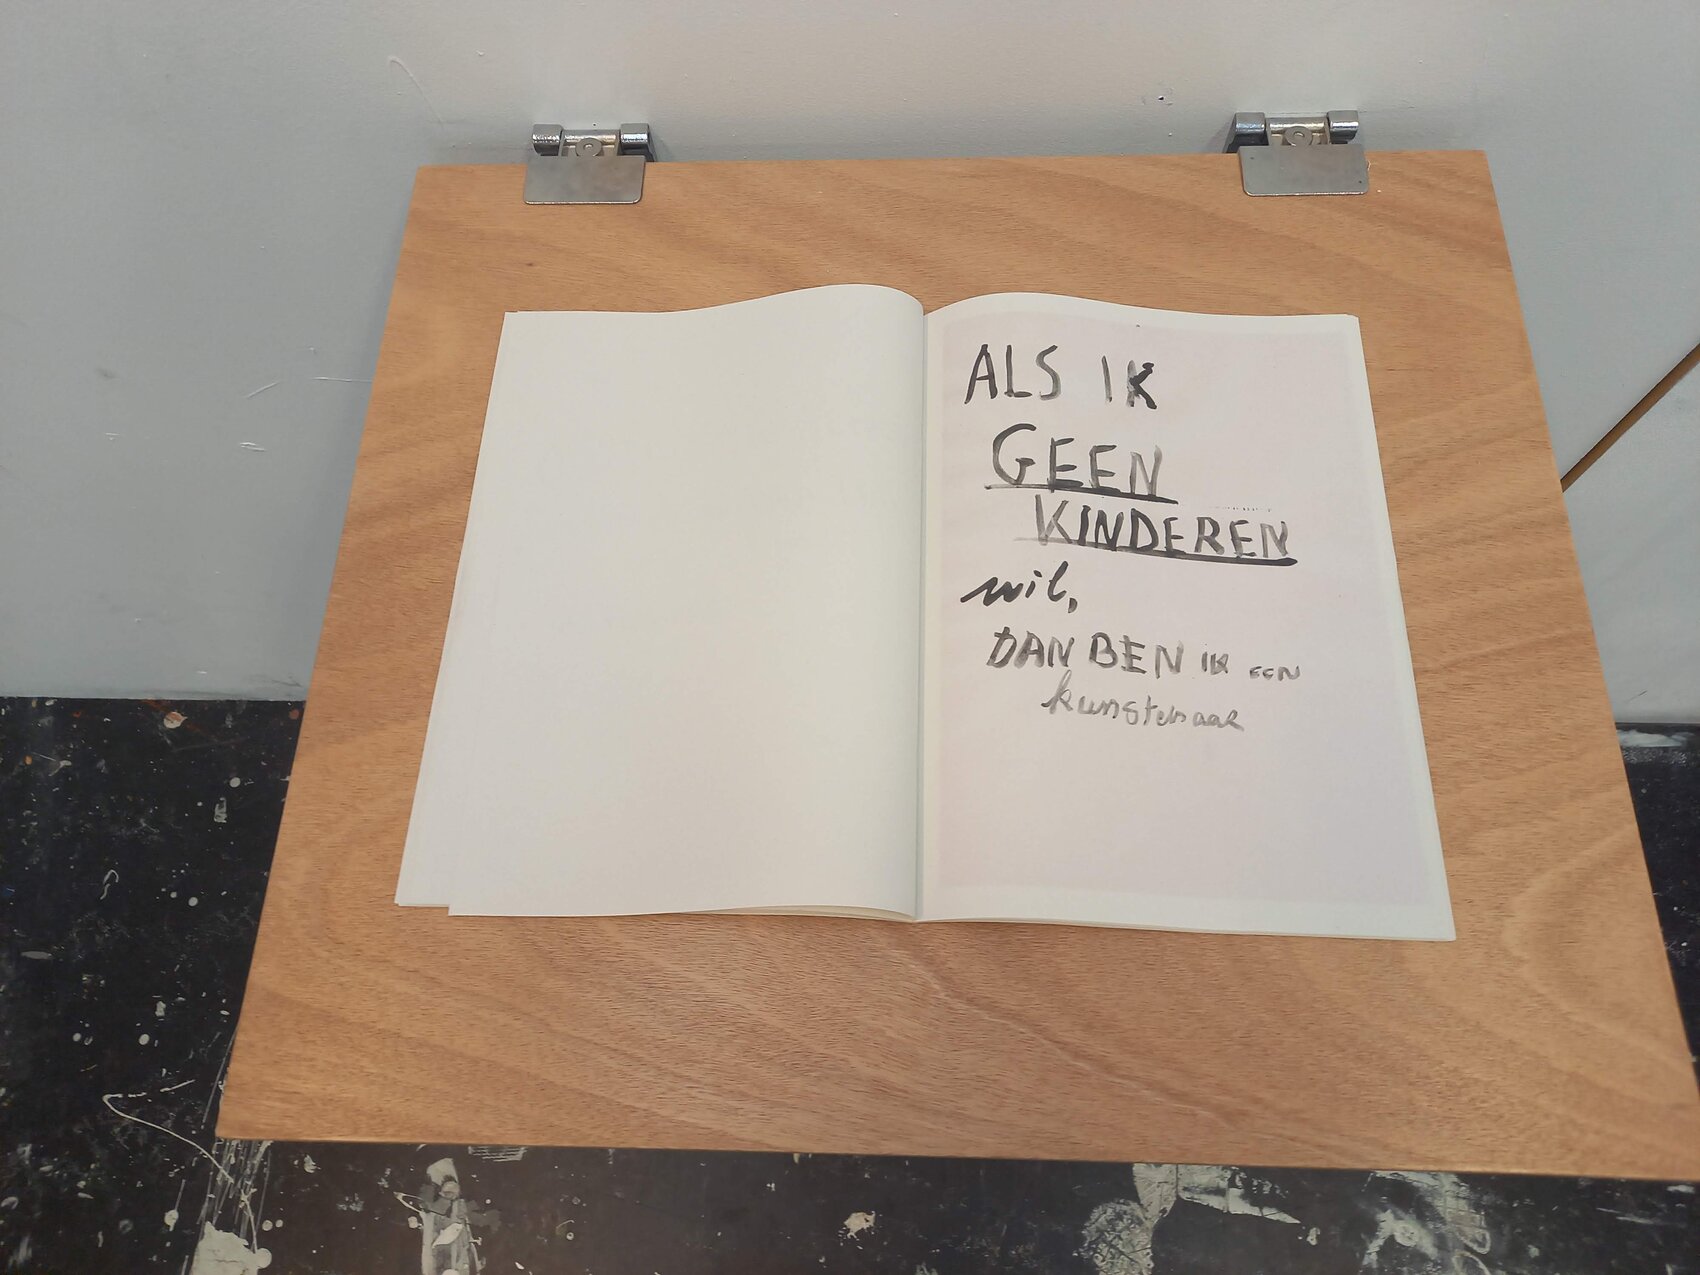 ALS IK
GEEN
KINDEREN
wil,
DAN BEN IK EEN
kunstenaar